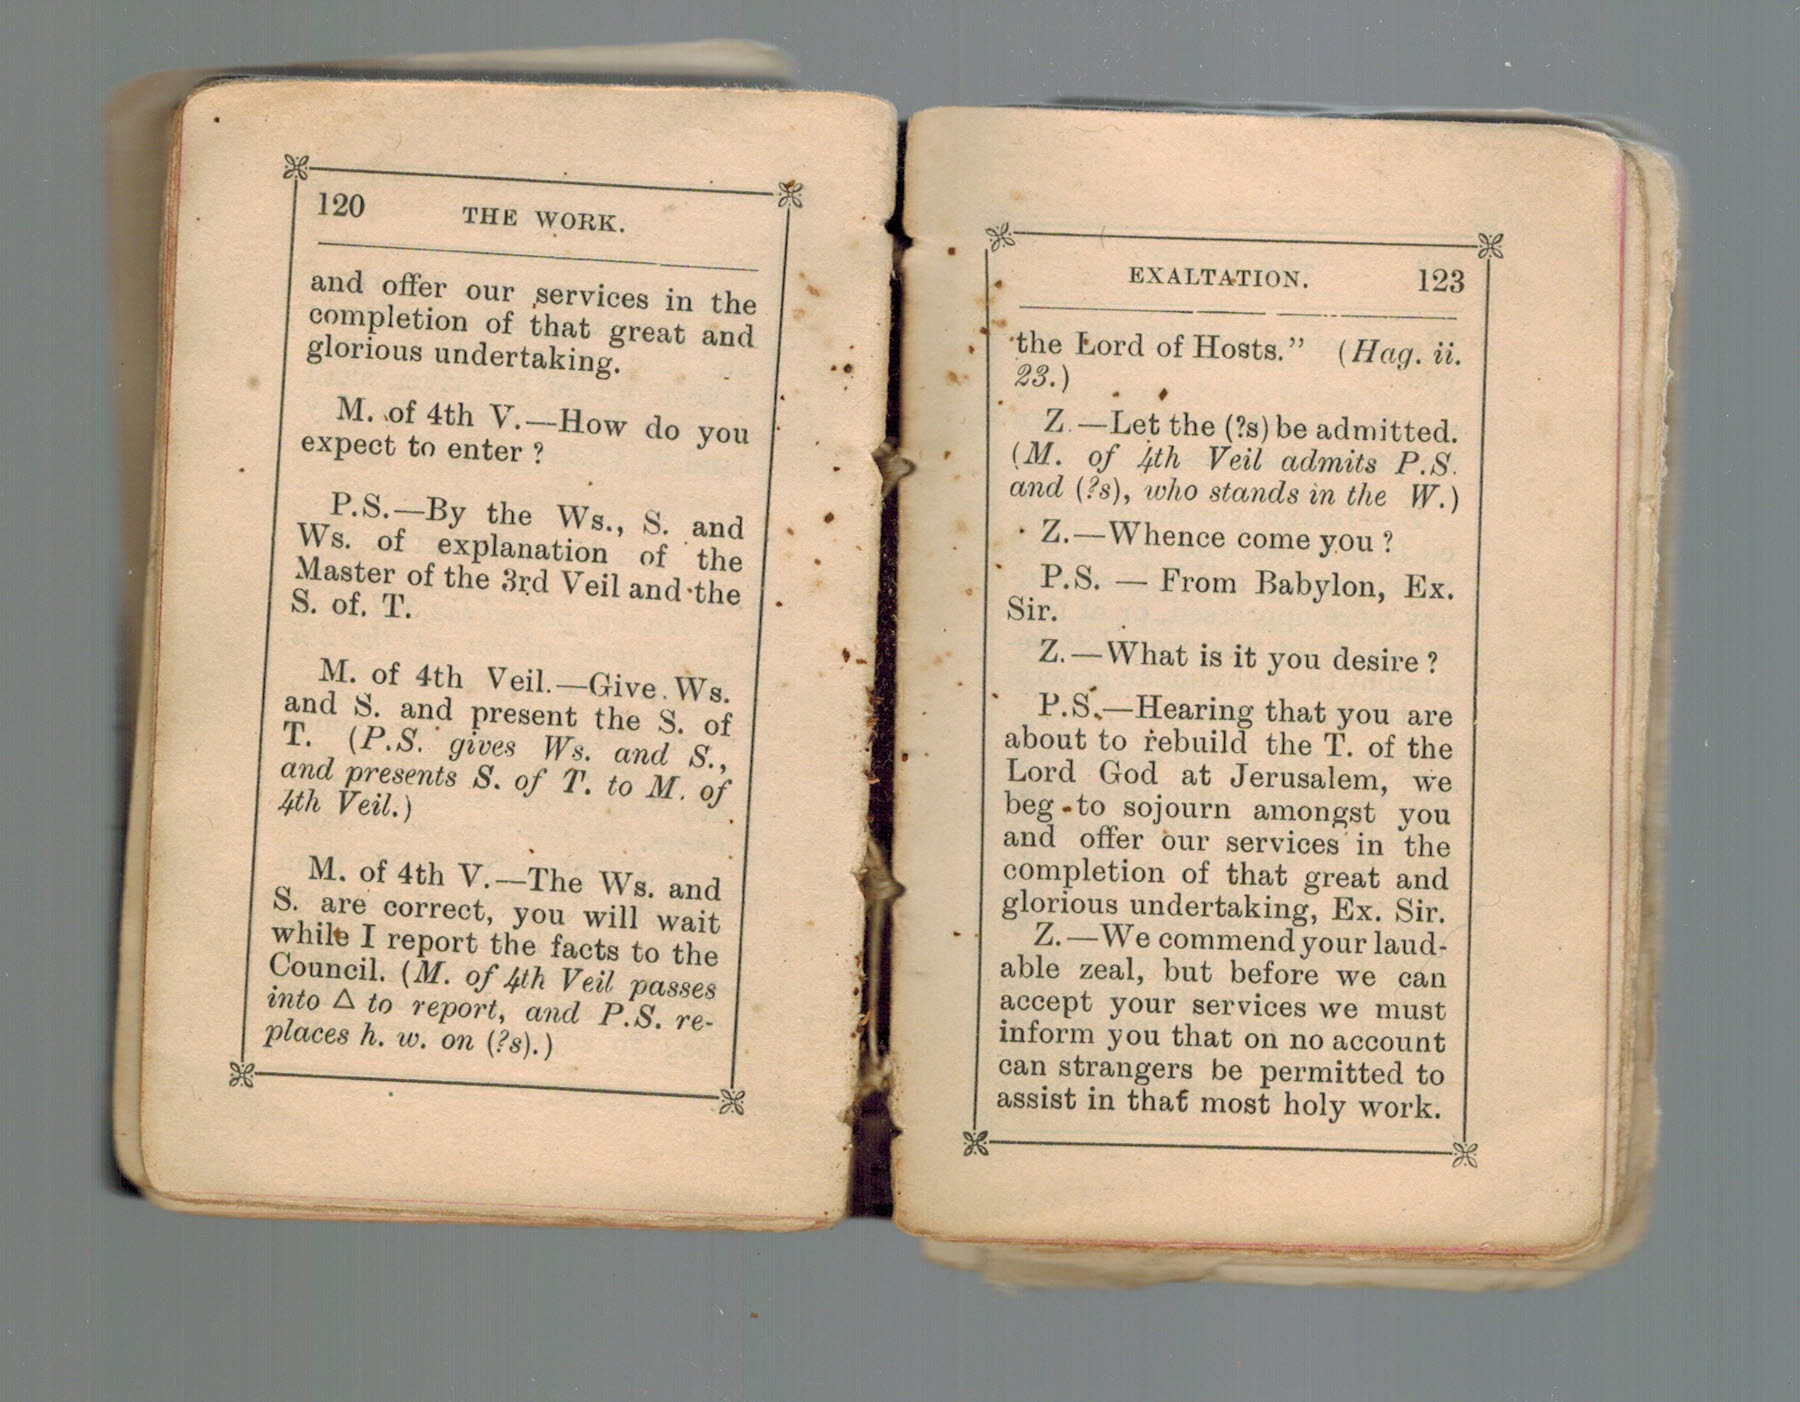 120 THE WORK.
and offer our services in the
completion of that great and
glorious undertaking.
M. of 4th V.—How do you
expect to enter ?
P.S.—By the Ws., S. and
Ws. of explanation of the
Master of the 3rd Veil and the
S. of. T.
M. of 4th Veil.—Give Ws.
and S. and present the S. of
T. (P.S. gives Ws. and S.,
and presents S. of T. to M. of
4th Veil.)
M. of 4th V.—The Ws. and
S. are correct, you will wait
while I report the facts to the
Council. (M. of 4th Veil passes
into △ to report, and P.S. re-
places h. w. on (?s).)
EXALTATION. 123
the Lord of Hosts.” (Hag. ii.
23.)
Z.—Let the (?s) be admitted.
(M. of 4th Veil admits P.S.
and (?s), who stands in the W.)
Z.—Whence come you ?
P.S. — From Babylon, Ex.
Sir.
Z.—What is it you desire ?
P.S.—Hearing that you are
about to rebuild the T. of the
Lord God at Jerusalem, we
beg to sojourn amongst you
and offer our services in the
completion of that great and
glorious undertaking, Ex. Sir.
Z.—We commend your laud-
able zeal, but before we can
accept your services we must
inform you that on no account
can strangers be permitted to
assist in that most holy work.